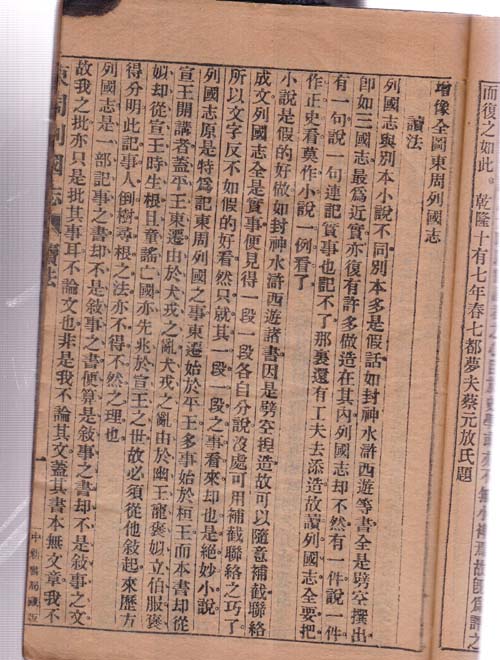 而復之如此
乾隆十有七年春七都夢夫蔡元放氏題
增像全圖東周列國志
讀法
列國志與別本小說不同別本多是假話如封神水滸西遊等書全是劈空撰出
卽如三國志最爲近實亦復有許多做造在其內列國志却不然有一件說一件
有一句說一句連記實事也記不了那裏還有工夫去添造故讀列國志全要把
作正史看莫作小說一例看了
小說是假的好做如封神水滸西遊諸書因是劈空揑造故可以隨意補截聯絡
成文列國志全是實事便見得一段一段各自分說沒處可用補截聯絡之巧了
所以文字反不如假的好看然只就其一段一段之事看來却也是絕妙小說
列國志原是特爲記東周列國之事東遷始於平王多事始於桓王而本書却從
宣王開講者蓋平王東遷由於犬戎之亂犬戎之亂由於幽王寵褒姒立伯服褒
姒却從宣王時生根且童謠亡國亦先兆於宣王之世故必須從他敍起來歷方
得分明此記事人倒樹尋根之法亦不得不然之理也
列國志是一部記事之書却不是敍事之書便算是敍事之書却不是敍事之文
故我之批亦只是批其事耳不論文也非是我不論其文蓋其書本無文章我不
東周列國志 讀法
一